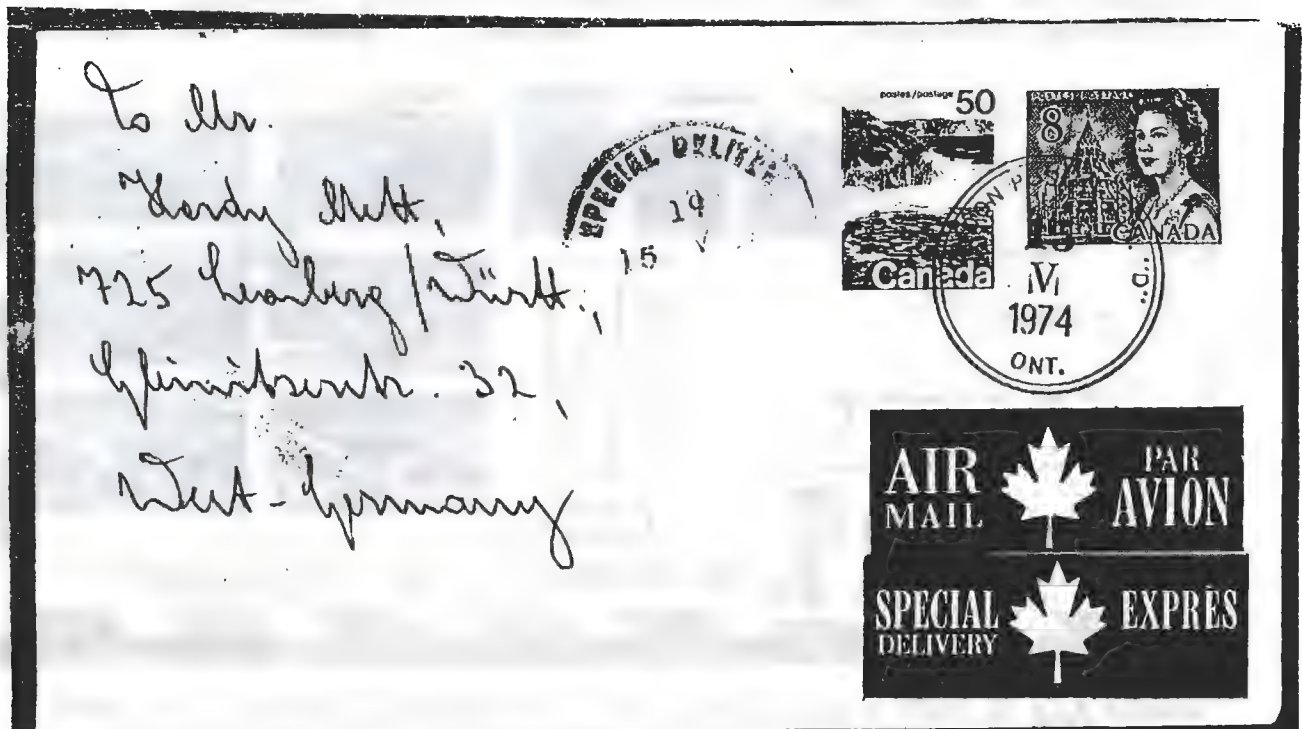 To Mr.
Hardy Mett,
725 Leonberg/Württ.,
32,
West-Germany
SPECIAL DELIVERY
19
15 V
postes/postage 50
Canada
8
CANADA
1974
ONT.
AIR MAIL
PAR AVION
SPECIAL DELIVERY
EXPRÈS